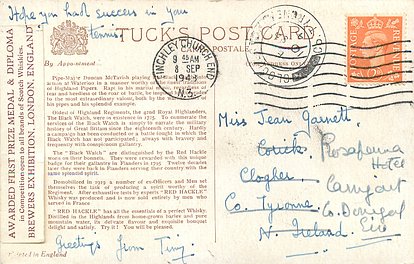 Hope you had success in your
tennis
TUCK'S POSTCARD
By Appointment
AWARDED FIRST PRIZE MEDAL & DIPLOMA
in Competition open to all brands of Scotch Whiskies.
BREWERS EXHIBITION, LONDON, ENGLAND
Pipe-Major Duncan McTavish playing
action at Waterloo in a manner worthy
of Highland Pipers. Rapt in his martial
fear and heedless of the roar or battle, he
to the most extraordinary valour, both by the
his pipes and his splendid example.
Of all Highland Regiments, the grand Royal Highlanders,
The Black Watch, were in existence in 1725. To enumerate the
services of the Black Watch is simply to narrate the military
history of Great Britain since the eighteenth century. Hardly
a campaign has been conducted or a battle fought in which the
Black Watch has not participated, always with honour and
frequently with conspicuous gallantry.
The "Black Watch" are distinguished by the Red Hackle
worn on their bonnets. They were rewarded with this unique
badge for their gallantry in Flanders in 1795. Twelve decades
later they were back in Flanders serving their country with the
same splendid spirit.
Demobilized in 1919 a number of ex-Officers and Men set
themselves the task of producing a spirit worthy of the
Regiment. After exhaustive tests by experts "RED HACKLE"
Whisky was produced and is now sold entirely by men who
served in France
"RED HACKLE" has all the essentials of a perfect Whisky.
Distilled in the Highlands from home-grown barley and pure
mountain water, its delicate flavour and exquisite bouquet
delight and satisfy. Try it! You will be pleased.
Printed in England
Greetings from Tiny.
FINCHLEY CHURCH END
9 15AM
8 SEP
194
N.3.
POSTAGE
REVENUE
Miss Jean Garnett,
Rosapenna
Hotel
Clogher
Carrigart
Co. Tyrone
Co. Donegal
N. Ireland
Eire